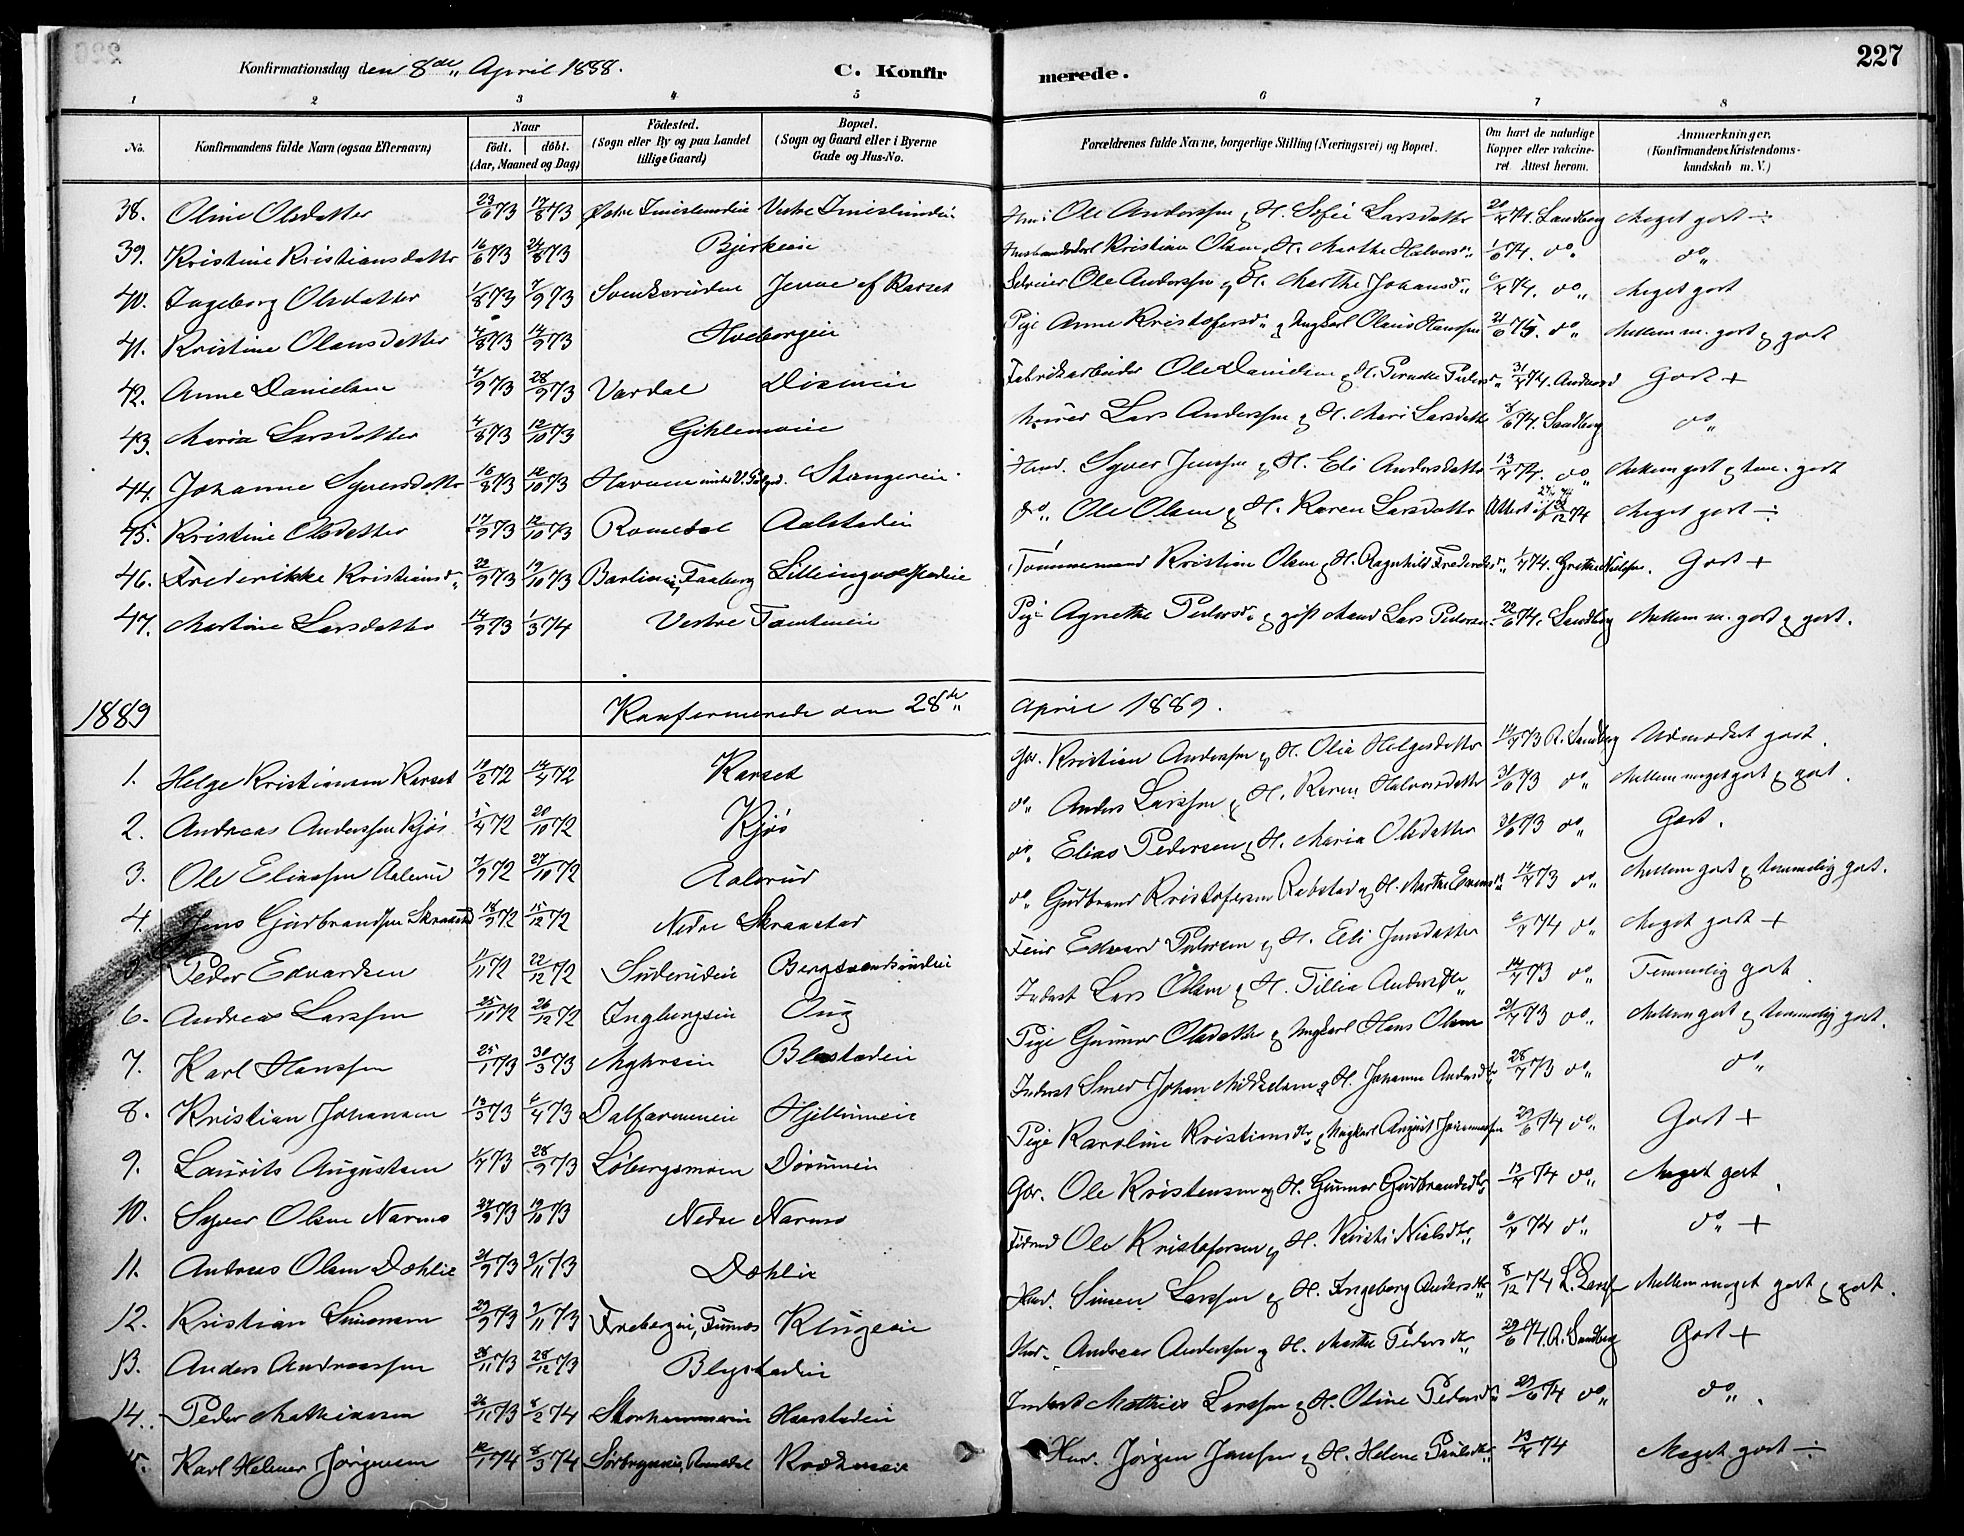 227
Konfirmationsdag den 8de April 1888.
C. Konfir merede.
1 2 3 4 5 6 7 8
No. Konfirmandens fulde Navn (ogsaa Efternavn) Naar födt. döbt. (Aar, Maaned og Dag) Födested. (Sogn eller By og paa Landet tillige Gaard) Bopæl. (Sogn og Gaard eller i Byerne Gade og Hus-No. Forældrenes fulde Navne, borgerlige Stilling (Næringsvei) og Bopæl. Om havt de naturlige Kopper eller vakcineret Attest herom. Anmærkninger. (Konfirmandens Kristendomskundskab m. V.)
38. Oline Olsdatter 23/6 73 17/8 73 Østre Vestre Ole Anderssen & H. Sofie Larsdatter 20/7 74. Sandberg Meget godt ÷
39. Kristine Kristiansdatter 16/6 73 24/8 73 Bjerkeeie Kristian Olsen & H. Marthe Halvorsd. 1/6 74. do do
40. Ingeborg Olsdatter 1/8 73 7/9 73 Svenkerudeie af Karset Selveier Ole Anderssen & H. Marthe Johansd. 6/7 74. do Meget godt
41. Kristine Olausdatter 4/8 73 14/9 73 Hveborgeie Pige Anne Kristofersd. & Ungkarl Olaus Hanssen 21/6 75. do Mellem m. godt & godt
42. Anne Danielsen 4/9 73 28/9 73 Vardal Fabrikarbeider Ole Danielsen & H. Pernille Pedersd. 31/7 74. Godt +
43. Maria Larsdatter 4/8 73 12/10 73 Murer Lars Anderssen & H. Mari Larsdatter 8/6 74. Sandberg do
44. Johanne Syversdatter 16/8 73 12/10 73 Stangeeie Husm. Syver Jenssen & H. Eli Andersdatter 13/7 74. do Mellem godt & tem. godt
45. Kristine Olsdatter 17/9 73 12/10 73 Romedal Aalstadeie do Ole Olsen & H. Karen Larsdatter Attest af 12 74 Meget godt ÷
46. Frederikke Kristiansd. 22/9 73 19/10 73 Faaberg Tømmermand Kristian Olsen & H. Ragnhild Frederiksd. 1/7 74. Grethe Nielsen. Godt +
47. Martine Larsdatter 14/9 73 1/3 74 Vestre Pige Agnethe Pedersd. & gift Mand Lars Pedersen 22/6 74. Sandberg Mellem m. godt & godt.
1889 Konfermerede den 28de April 1889.
1. Helge Kristiansen Karset 19/2 72 14/4 72 Karset Gbr. Kristian Anderssen & H. Olia Helgesdatter 14/7 73 A. Sandberg Udmærket godt.
2. Andreas Anderssen Kjøs 5/4 72 20/10 72 Kjøs do Anders Larssen & H. Karen Halvorsdatter 3/6 73 do Mellem meget godt & godt.
3. Ole Eliassen Aalerud 7/9 72 27/10 72 Aalerud do Elias Pedersen & H. Maria Olsdatter 3/6 73 do Godt.
4. Jens Gudbrandsen Skraastad 18/9 72 15/12 72 Nedre Skraastad do Gudbrand Kristofersen Rebstad & H. Marthe 14/7 73 do Mellem godt & temmelig godt.
5. Peder Edvardsen 11/11 72 22/12 72 Edvard Pedersen & H. Eli Jensdatter 6/7 74 do Meget godt +
6. Andreas Larssen 25/10 72 26/12 72 Inderst Lars Olsen & H. Tillia Andersdtr. 14/7 73 do Temmelig godt
7. Karl Hanssen 25/1 73 30/3 73 Blæstadeie Pige Gunnor Olsdatter & Ungkarl Hans Olsen 21/7 73 do Mellem godt & temmelig godt.
8. Kristian Johansen 13/3 73 6/4 73 Dalfarmeneie Hjellumeie Inderst Smed Johan Mikkelsen & H. Johanne Andersdtr. 28/7 73 do do
9. Laurits Augustsen 1/7 73 28/9 73 Løbergsmoen Dørumeie Pige Karoline Kristiansdtr. & Ungkarl August 29/6 74 do Godt +
10. Syver Olsen Narmo 27/9 73 19/10 73 Nedre Narmo Gbr. Ole Kristensen & H. Gunnor Gudbrandsdtr. 13/7 74 do Meget godt
11. Andreas Olsen Dæhlie 21/9 73 9/11 73 Dæhlie Ole Kristofersen & H. Kirsti Nielsdtr. 6/7 74 do do +
12. Kristian Simensen 29/9 73 9/11 73 Frebergeie, Furnæs Klugeeie Husm. Simen Larssen & H. Ingeborg Andersdtr. 8/12 74 Mellem meget godt & godt.
13. Anders Andreassen 26/11 73 28/12 73 Blystadeie Husm. Andreas Anderssen & H. Marthe Pedersdtr. 29/6 74. A. Sandberg Godt +
14. Peder Mathiassen 26/11 73 8/2 74 Storhammereie Haarstadeie Inderst Mathias Larssen & H. Oline Pedersd. 29/6 74 do do
15. Karl Helmer Jørgensen 12/1 74 8/3 74 Romedal Husm. Jørgen Jenssen & H. Helene Paulsdtr. 13/7 74 Meget godt ÷